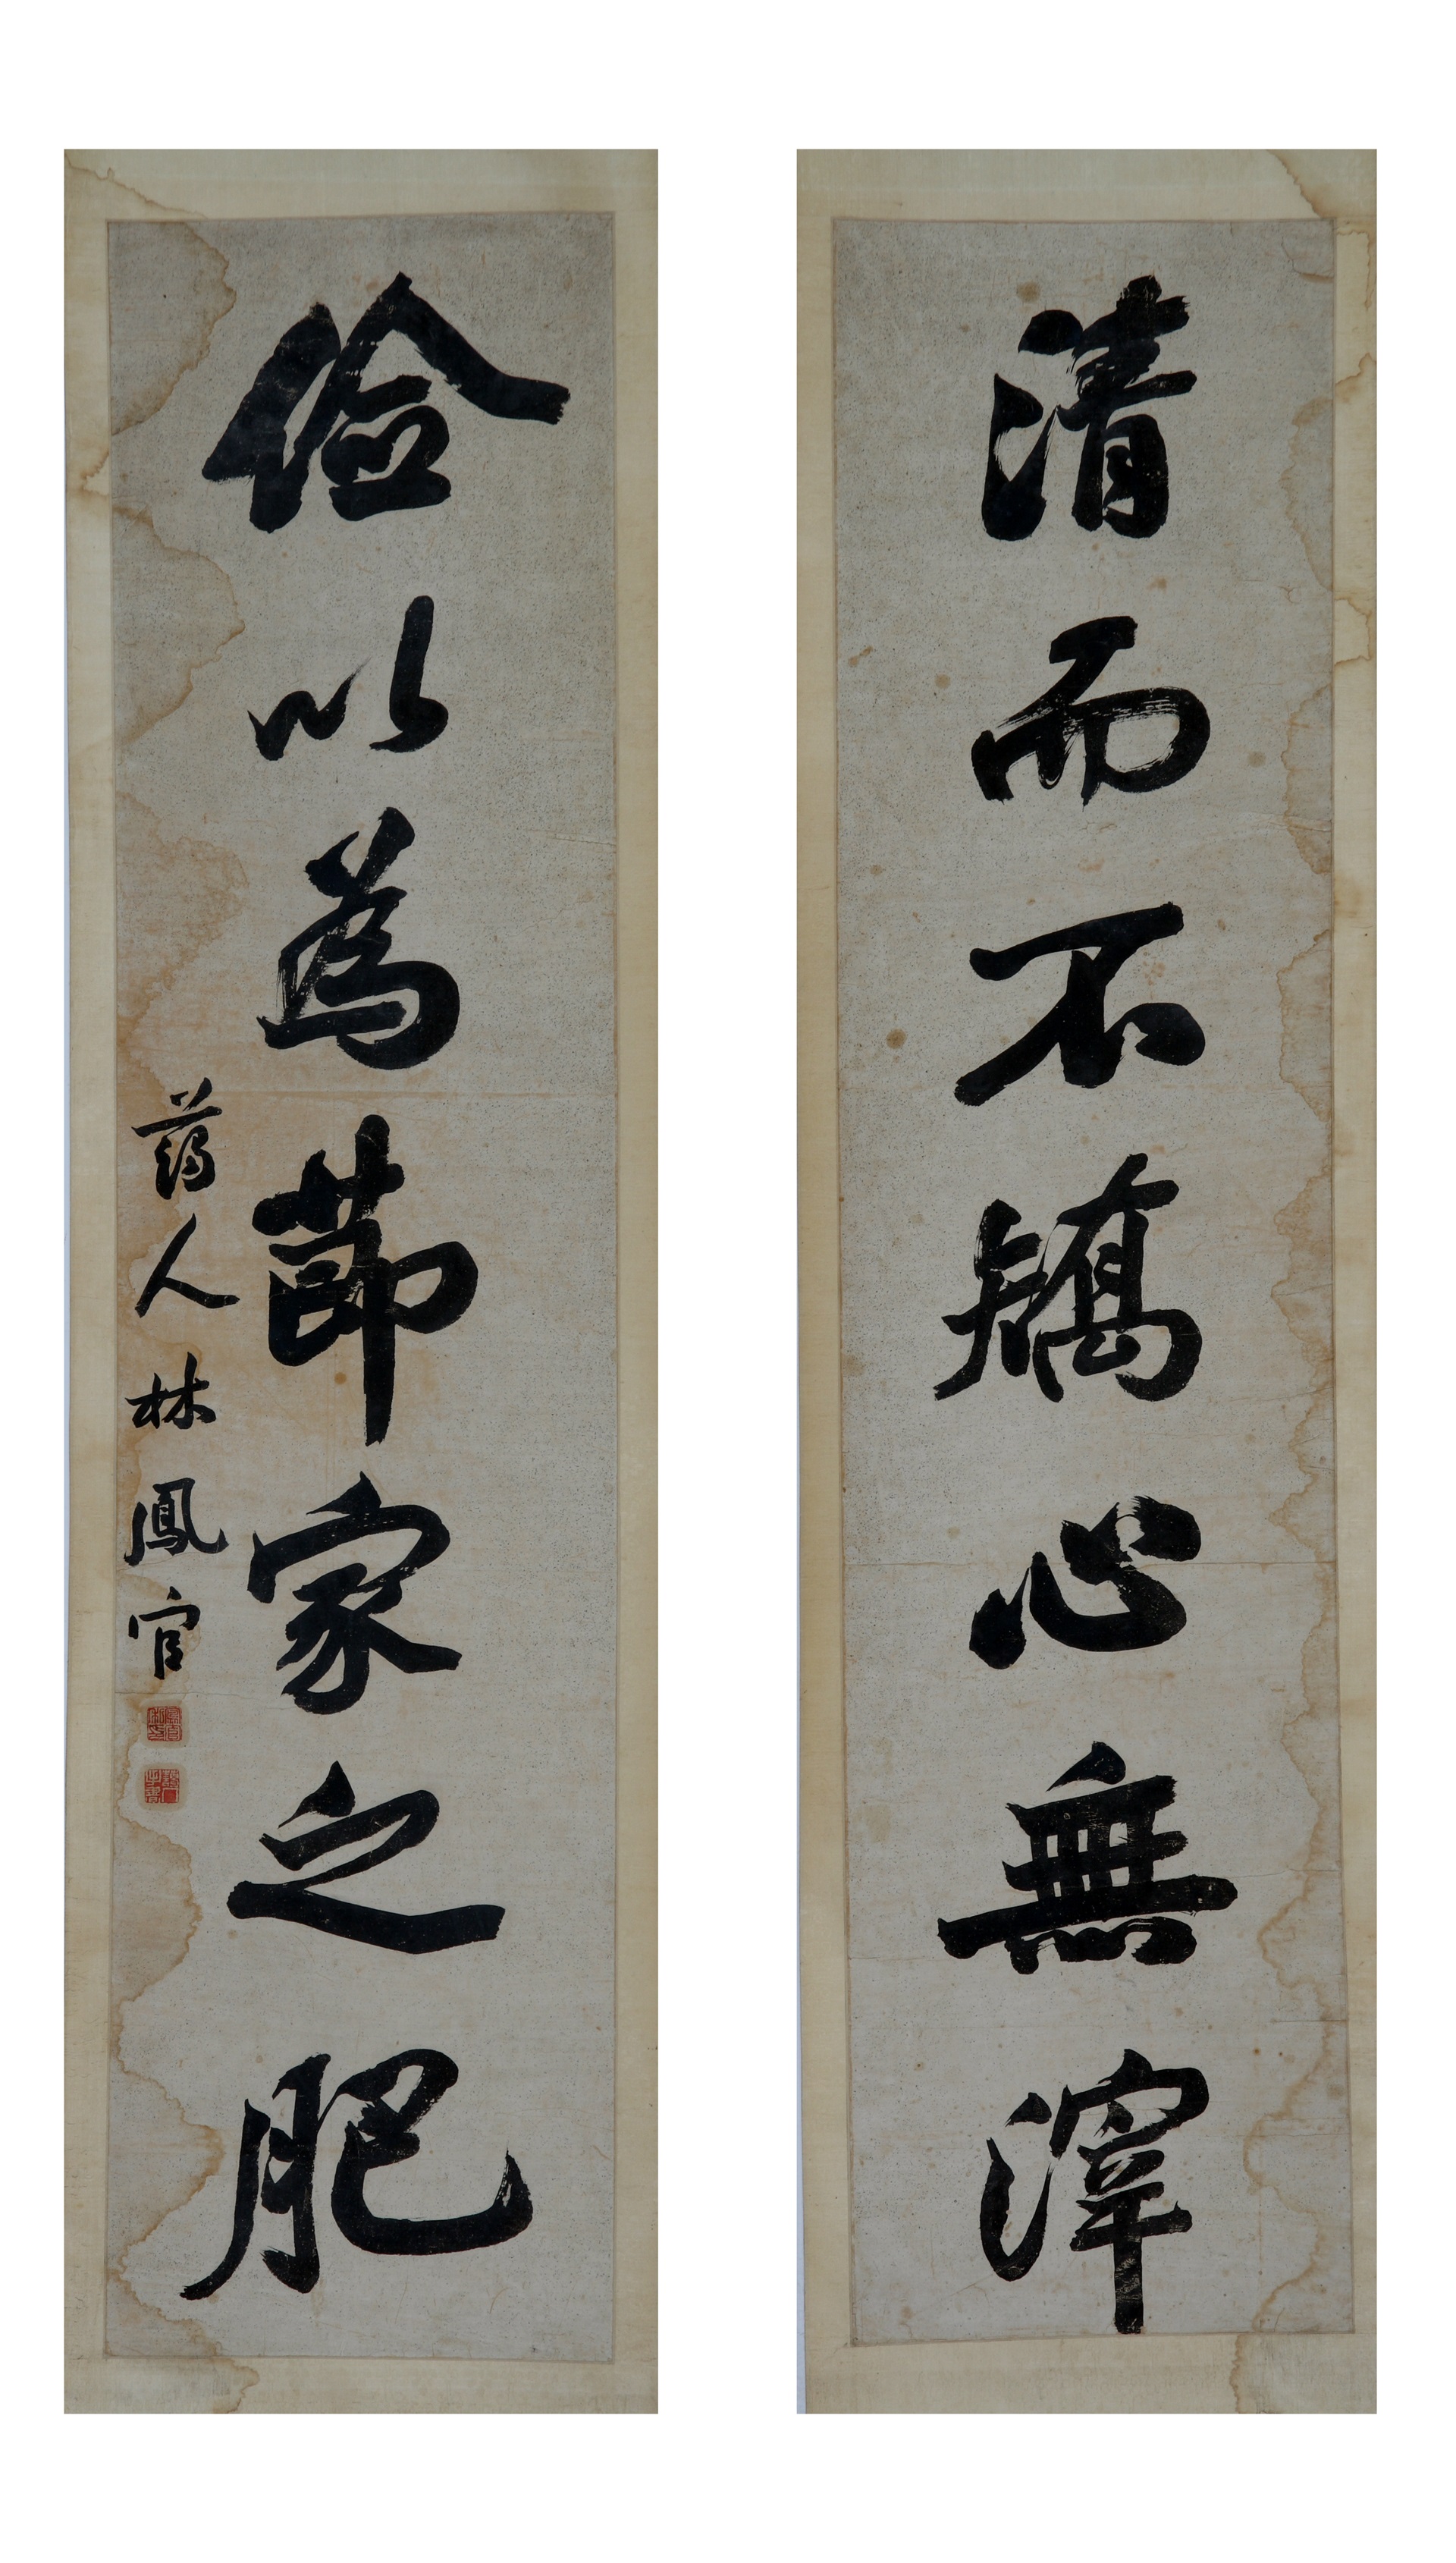 清而不矯心無滓
儉以為節家之肥
蔼人林鳳官